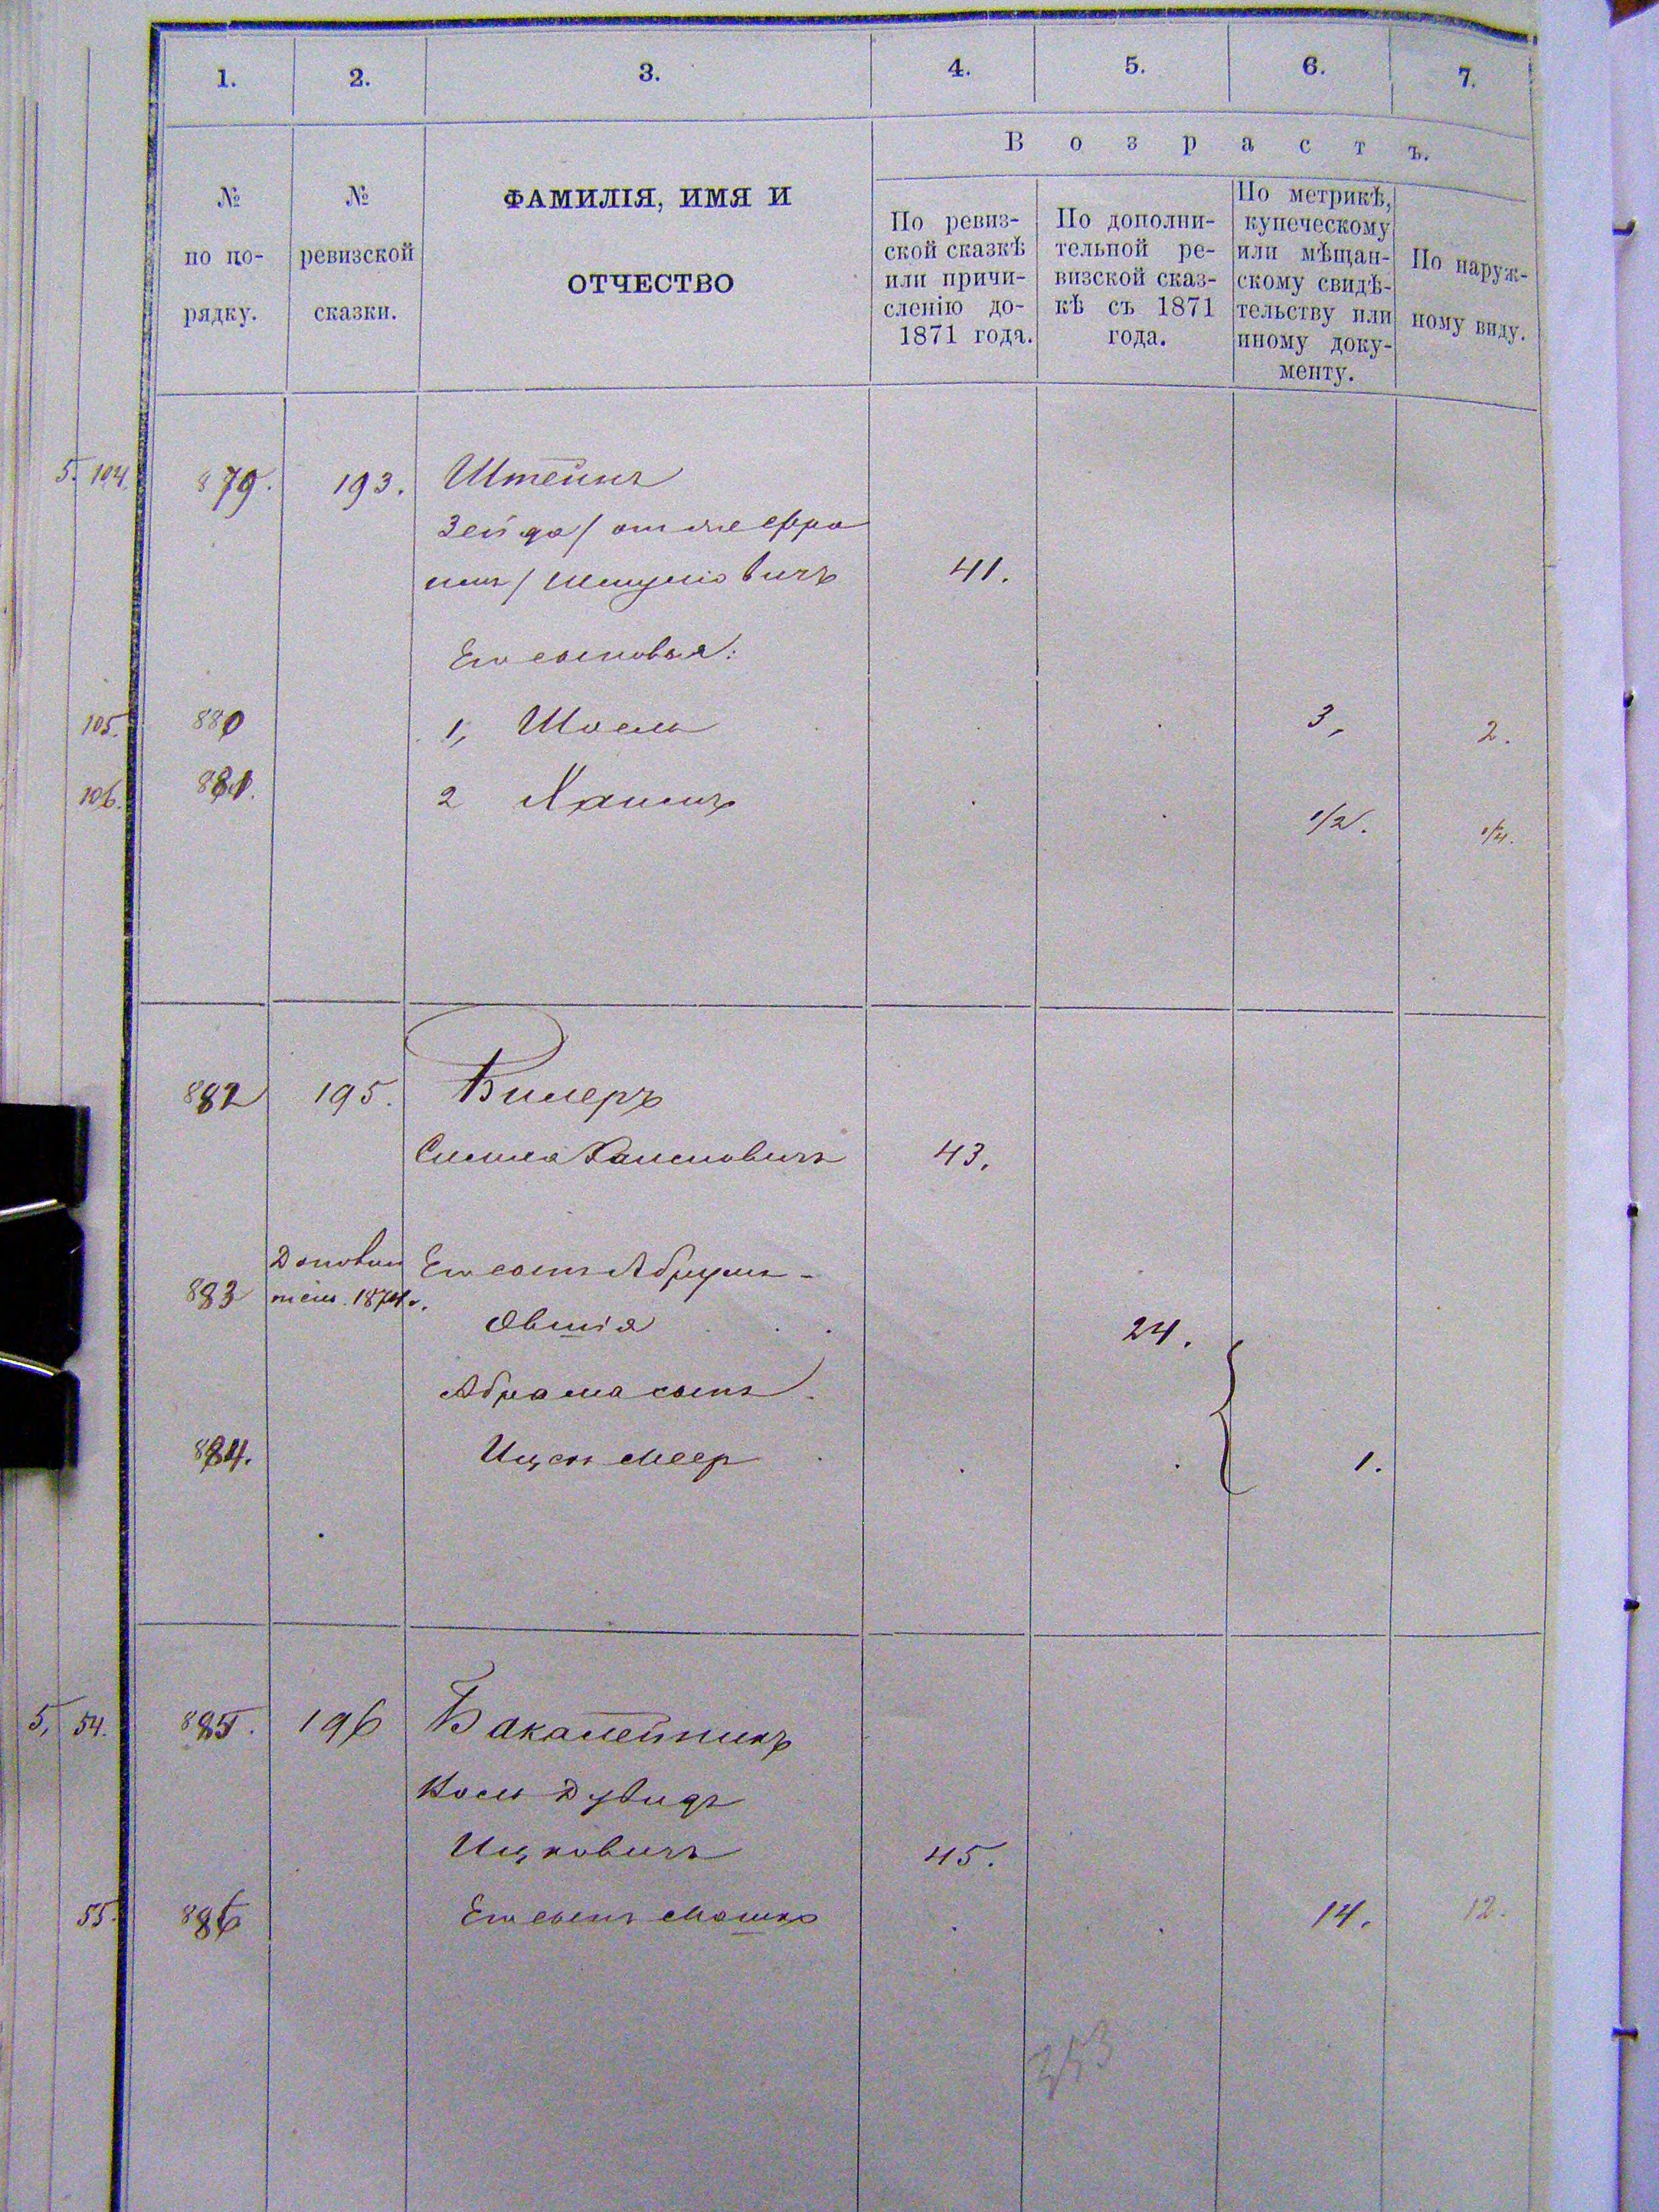 1. 2. 3. 4. 5. 6. 7.
Возрастъ.
№
по по-
рядку.
№
ревизской
сказки.
ФАМИЛІЯ, ИМЯ И
ОТЧЕСТВО
По ревиз-
ской сказкѣ
или причи-
сленію до-
1871 года.
По дополни-
тельной ре-
визской сказ-
кѣ съ 1871
года.
По метрикѣ,
купеческому
или мѣщан-
скому свидѣ-
тельству или
иному доку-
менту.
По наруж-
ному виду.
5. 104. 879. 193. Штейнъ
Зейда / онъ же Фро
имъ / Шмуліовичъ 41.
Его сыновья:
105. 880 1, Шоель 3, 2.
106. 881. 2 Хаимъ 1/2. 1/4.
882 195. Билеръ
Симха Хаимовичъ 43.
883 1874 г. Его сынъ Абрумъ-
Овшія 24.
Абрама сынъ
884. Ицек Меер 1.
5, 54. 885. 196 Бакалейникъ
Іось Дувидъ
Ицковичъ 45.
55. 886 Его сынъ Мошко 14. 12.
253